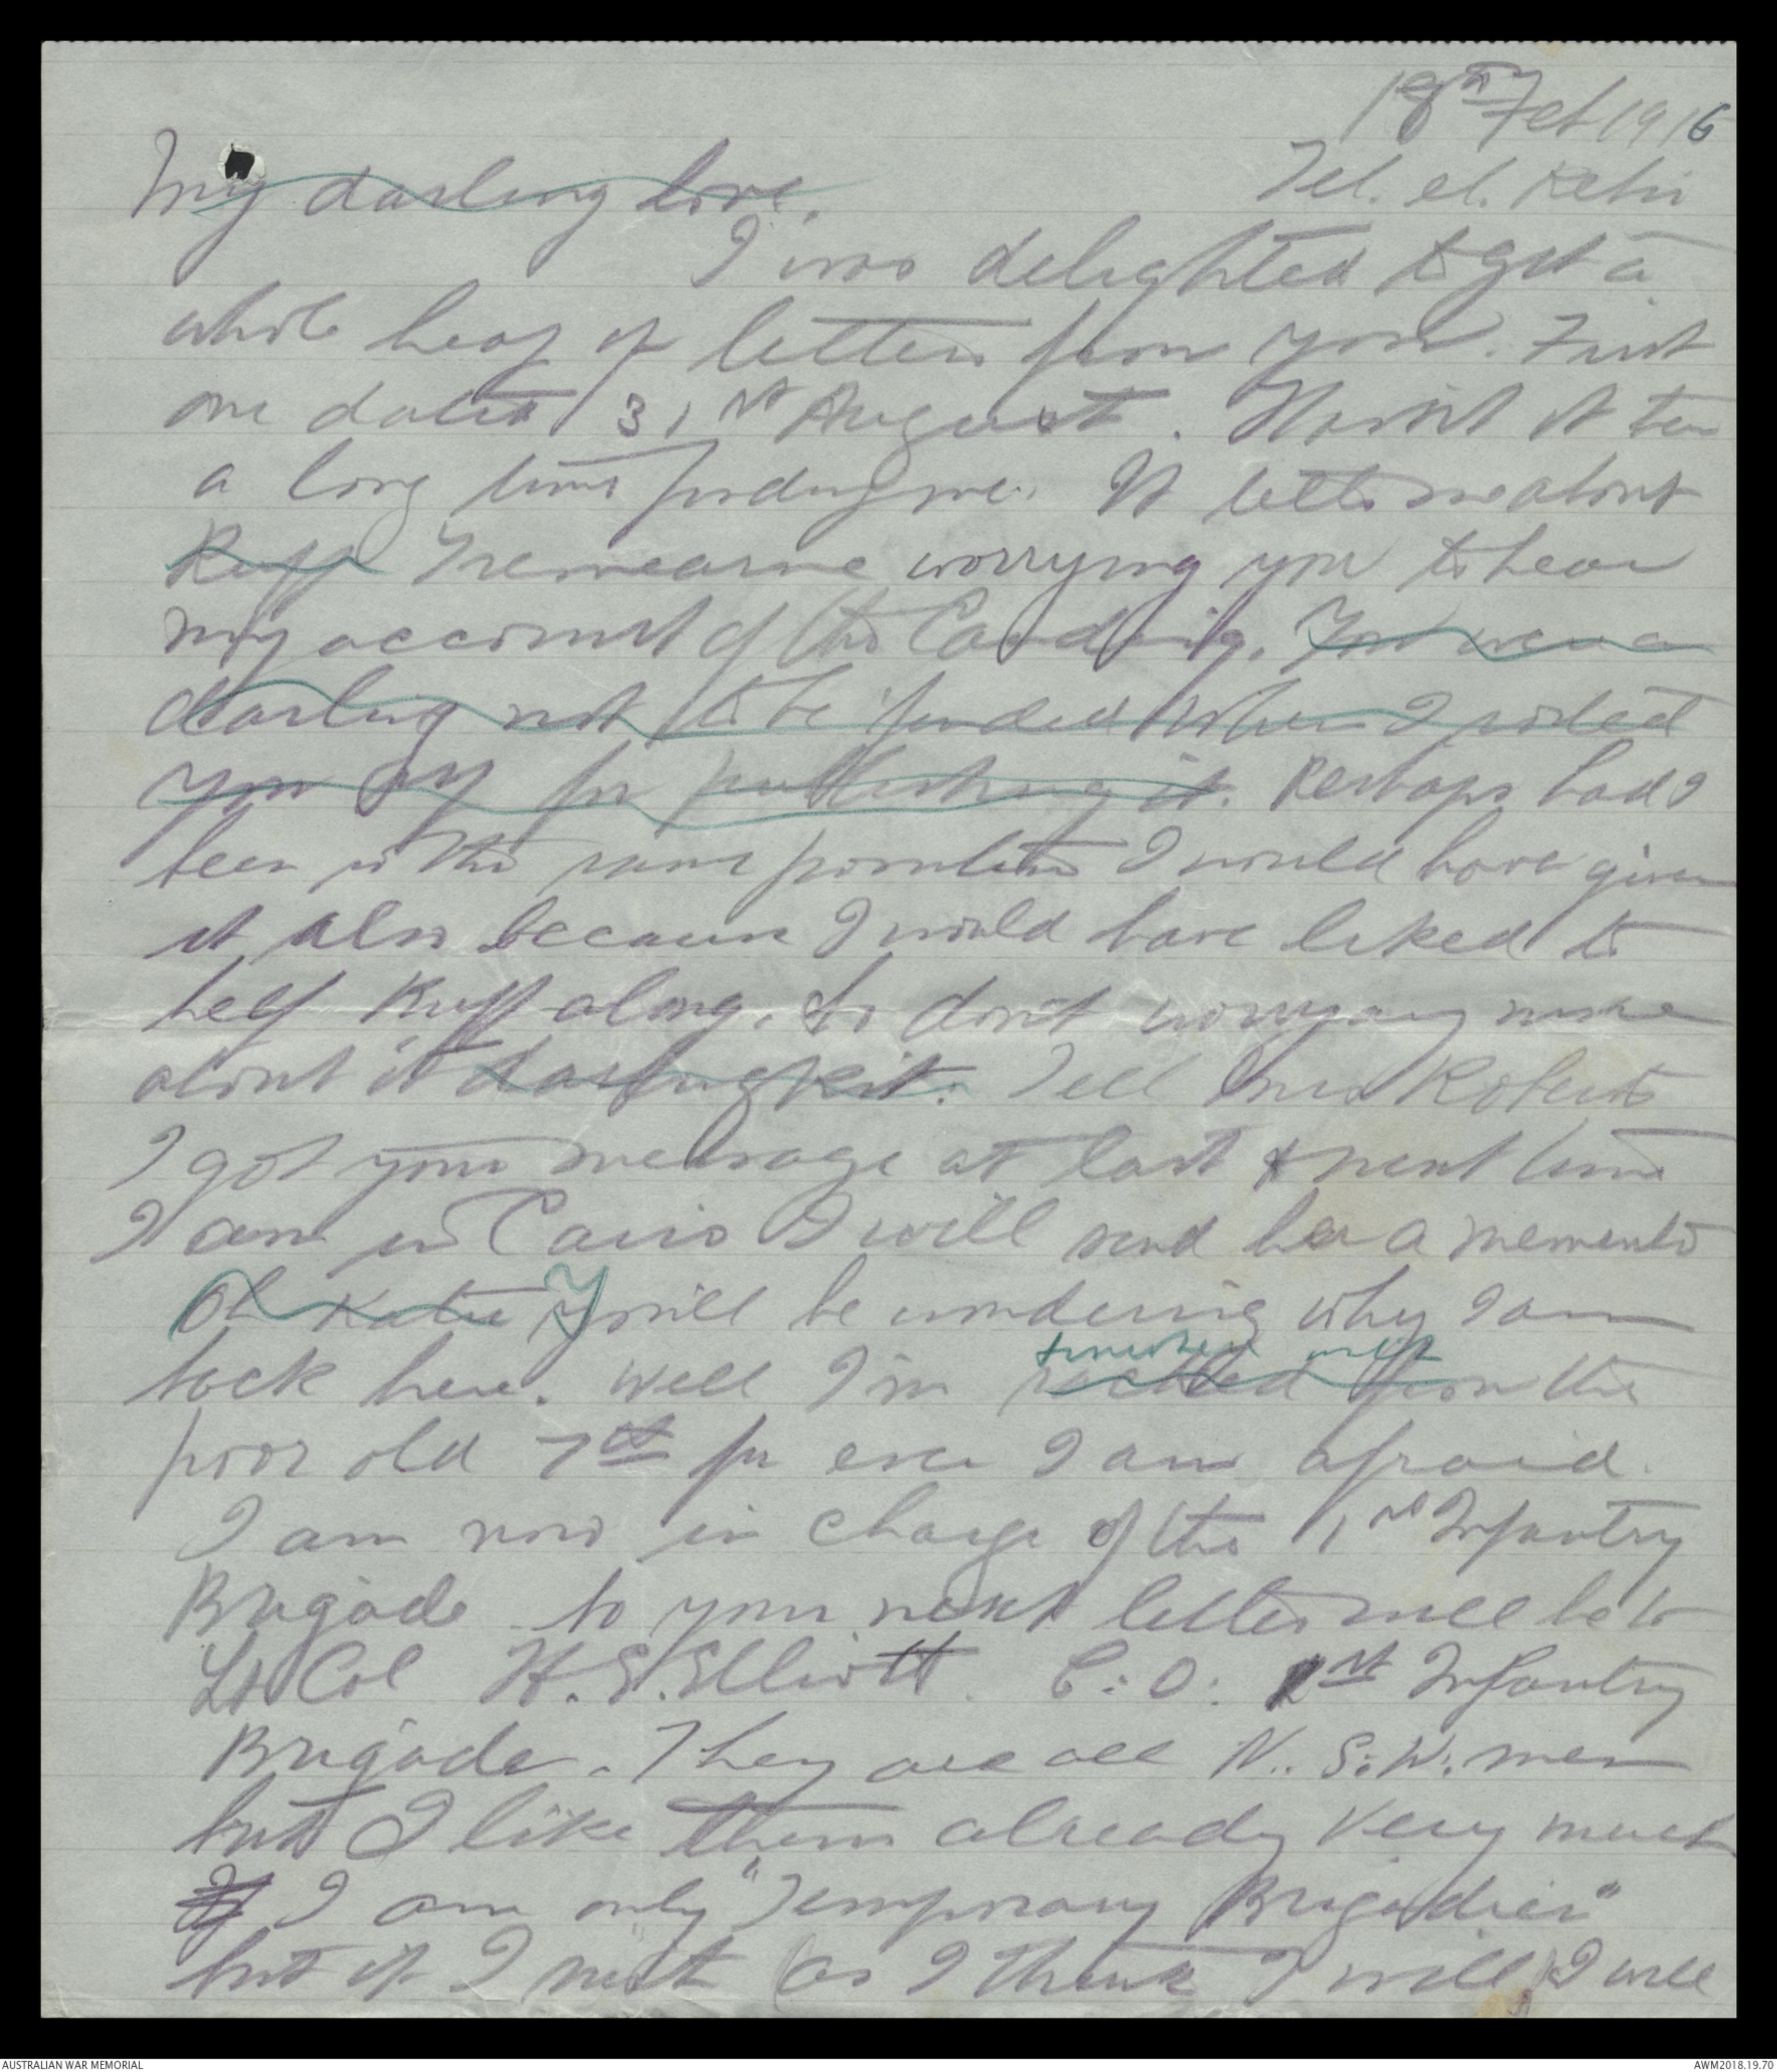 18th Feb 1916
Tel. el. Kebir
My darling love,
I was delighted to get a
whole heap of letters from you. First
one dated 31st August. Wasn't it
a long time finding me. It tells me about
Ruff Tremearne worrying you to hear
my account of the Landing. You were a
darling not to be offended when I
you off for publishing it. Perhaps had I
been in the same position I would have given
it also because I would have liked to
help Ruff along. So don't worry any more
about it darling Kit. Tell Mrs Roberts
I got your message at last & next time
I am in Cairo I will send her a memento
Oh Katie Y will be wondering why I am
back here. Well I'm
finished with
sacked from the
poor old 7th for ever I am afraid.
I am now in charge of the 1st Infantry
Brigade so your next letters will be to
Lt Col H.E. Elliott. C.O. 1st Infantry
Brigade. They are all N.S.W. men
but I like them already very much
If I am only "Temporary Brigadier"
but if I suit (as I think I will) I will
AUSTRALIAN WAR MEMORIAL
AWM2018.19.70